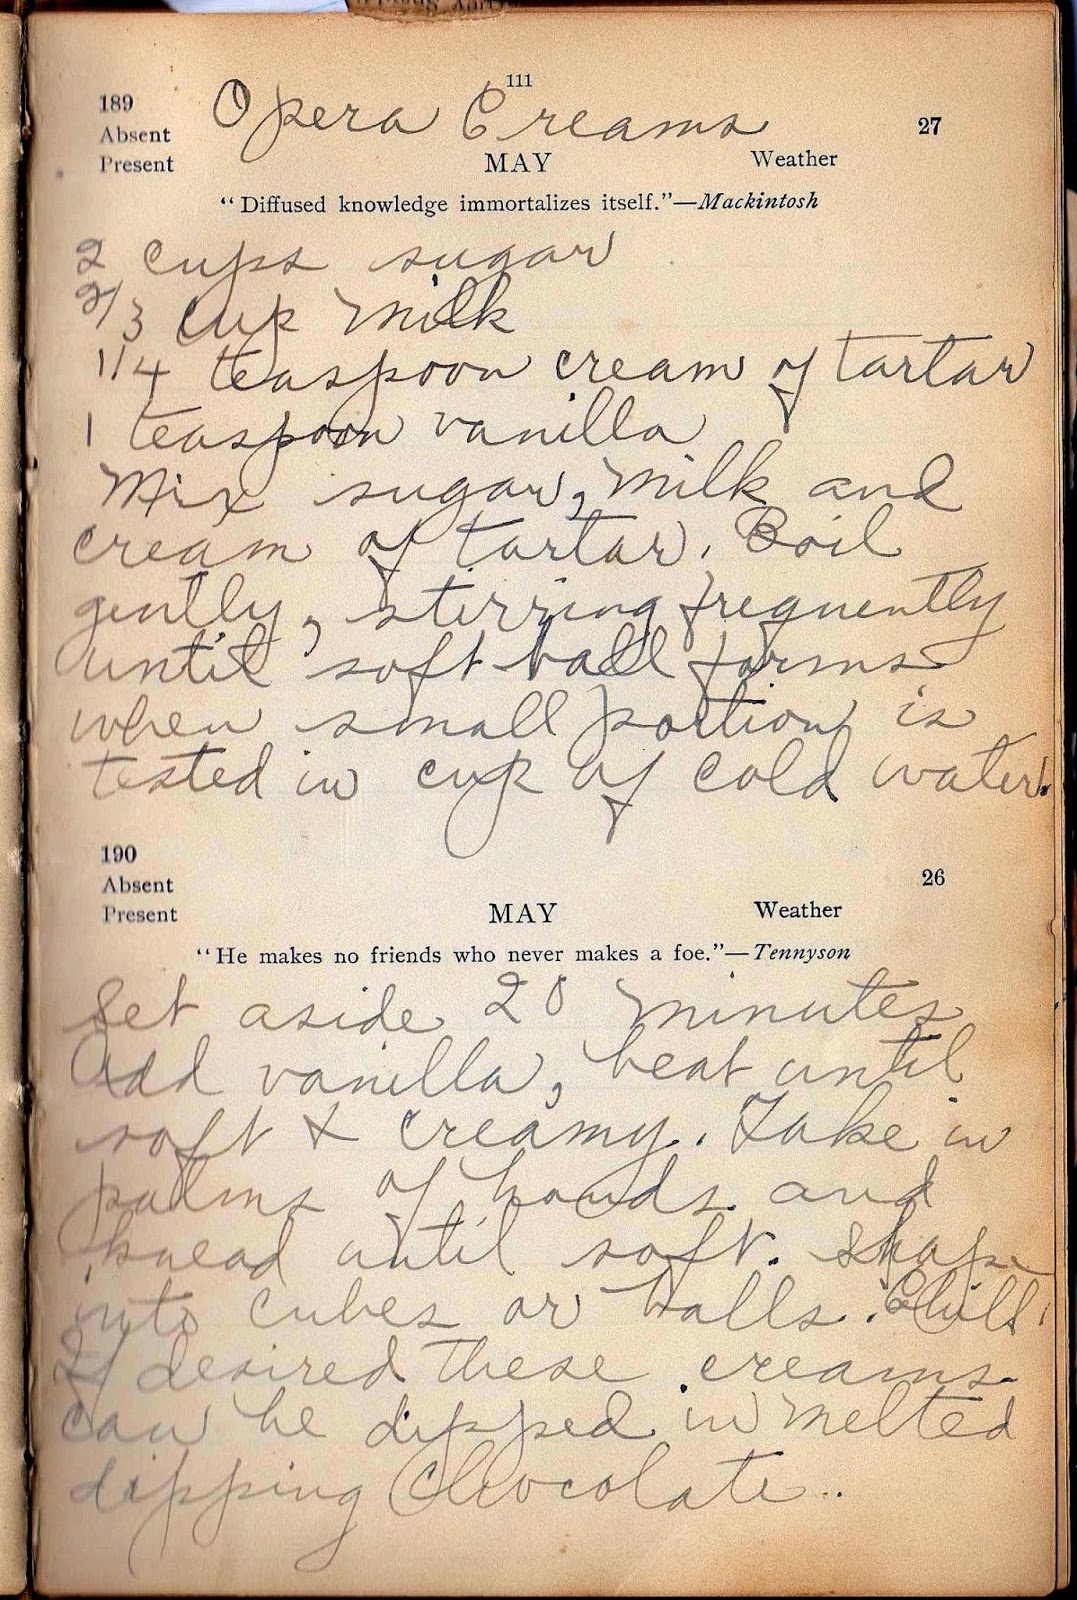 111
189
Opera Creams
27
Absent
Present
MAY
Weather
“Diffused knowledge immortalizes itself.”—Mackintosh
2 cups sugar
2/3 cup milk
1/4 teaspoon cream of tartar
1 teaspoon vanilla
Mix sugar, milk and
cream of tartar. Boil
gently, stirring frequently
until soft ball forms
when small portion is
tested in cup of cold water.
190
Absent
26
Present
MAY
Weather
“He makes no friends who never makes a foe.”—Tennyson
Set aside 20 minutes
Add vanilla, beat until
soft & creamy. Take in
palms of hands and
knead until soft. Shape
into cubes or balls. Chill.
If desired these creams
can be dipped in melted
dipping Chocolate..